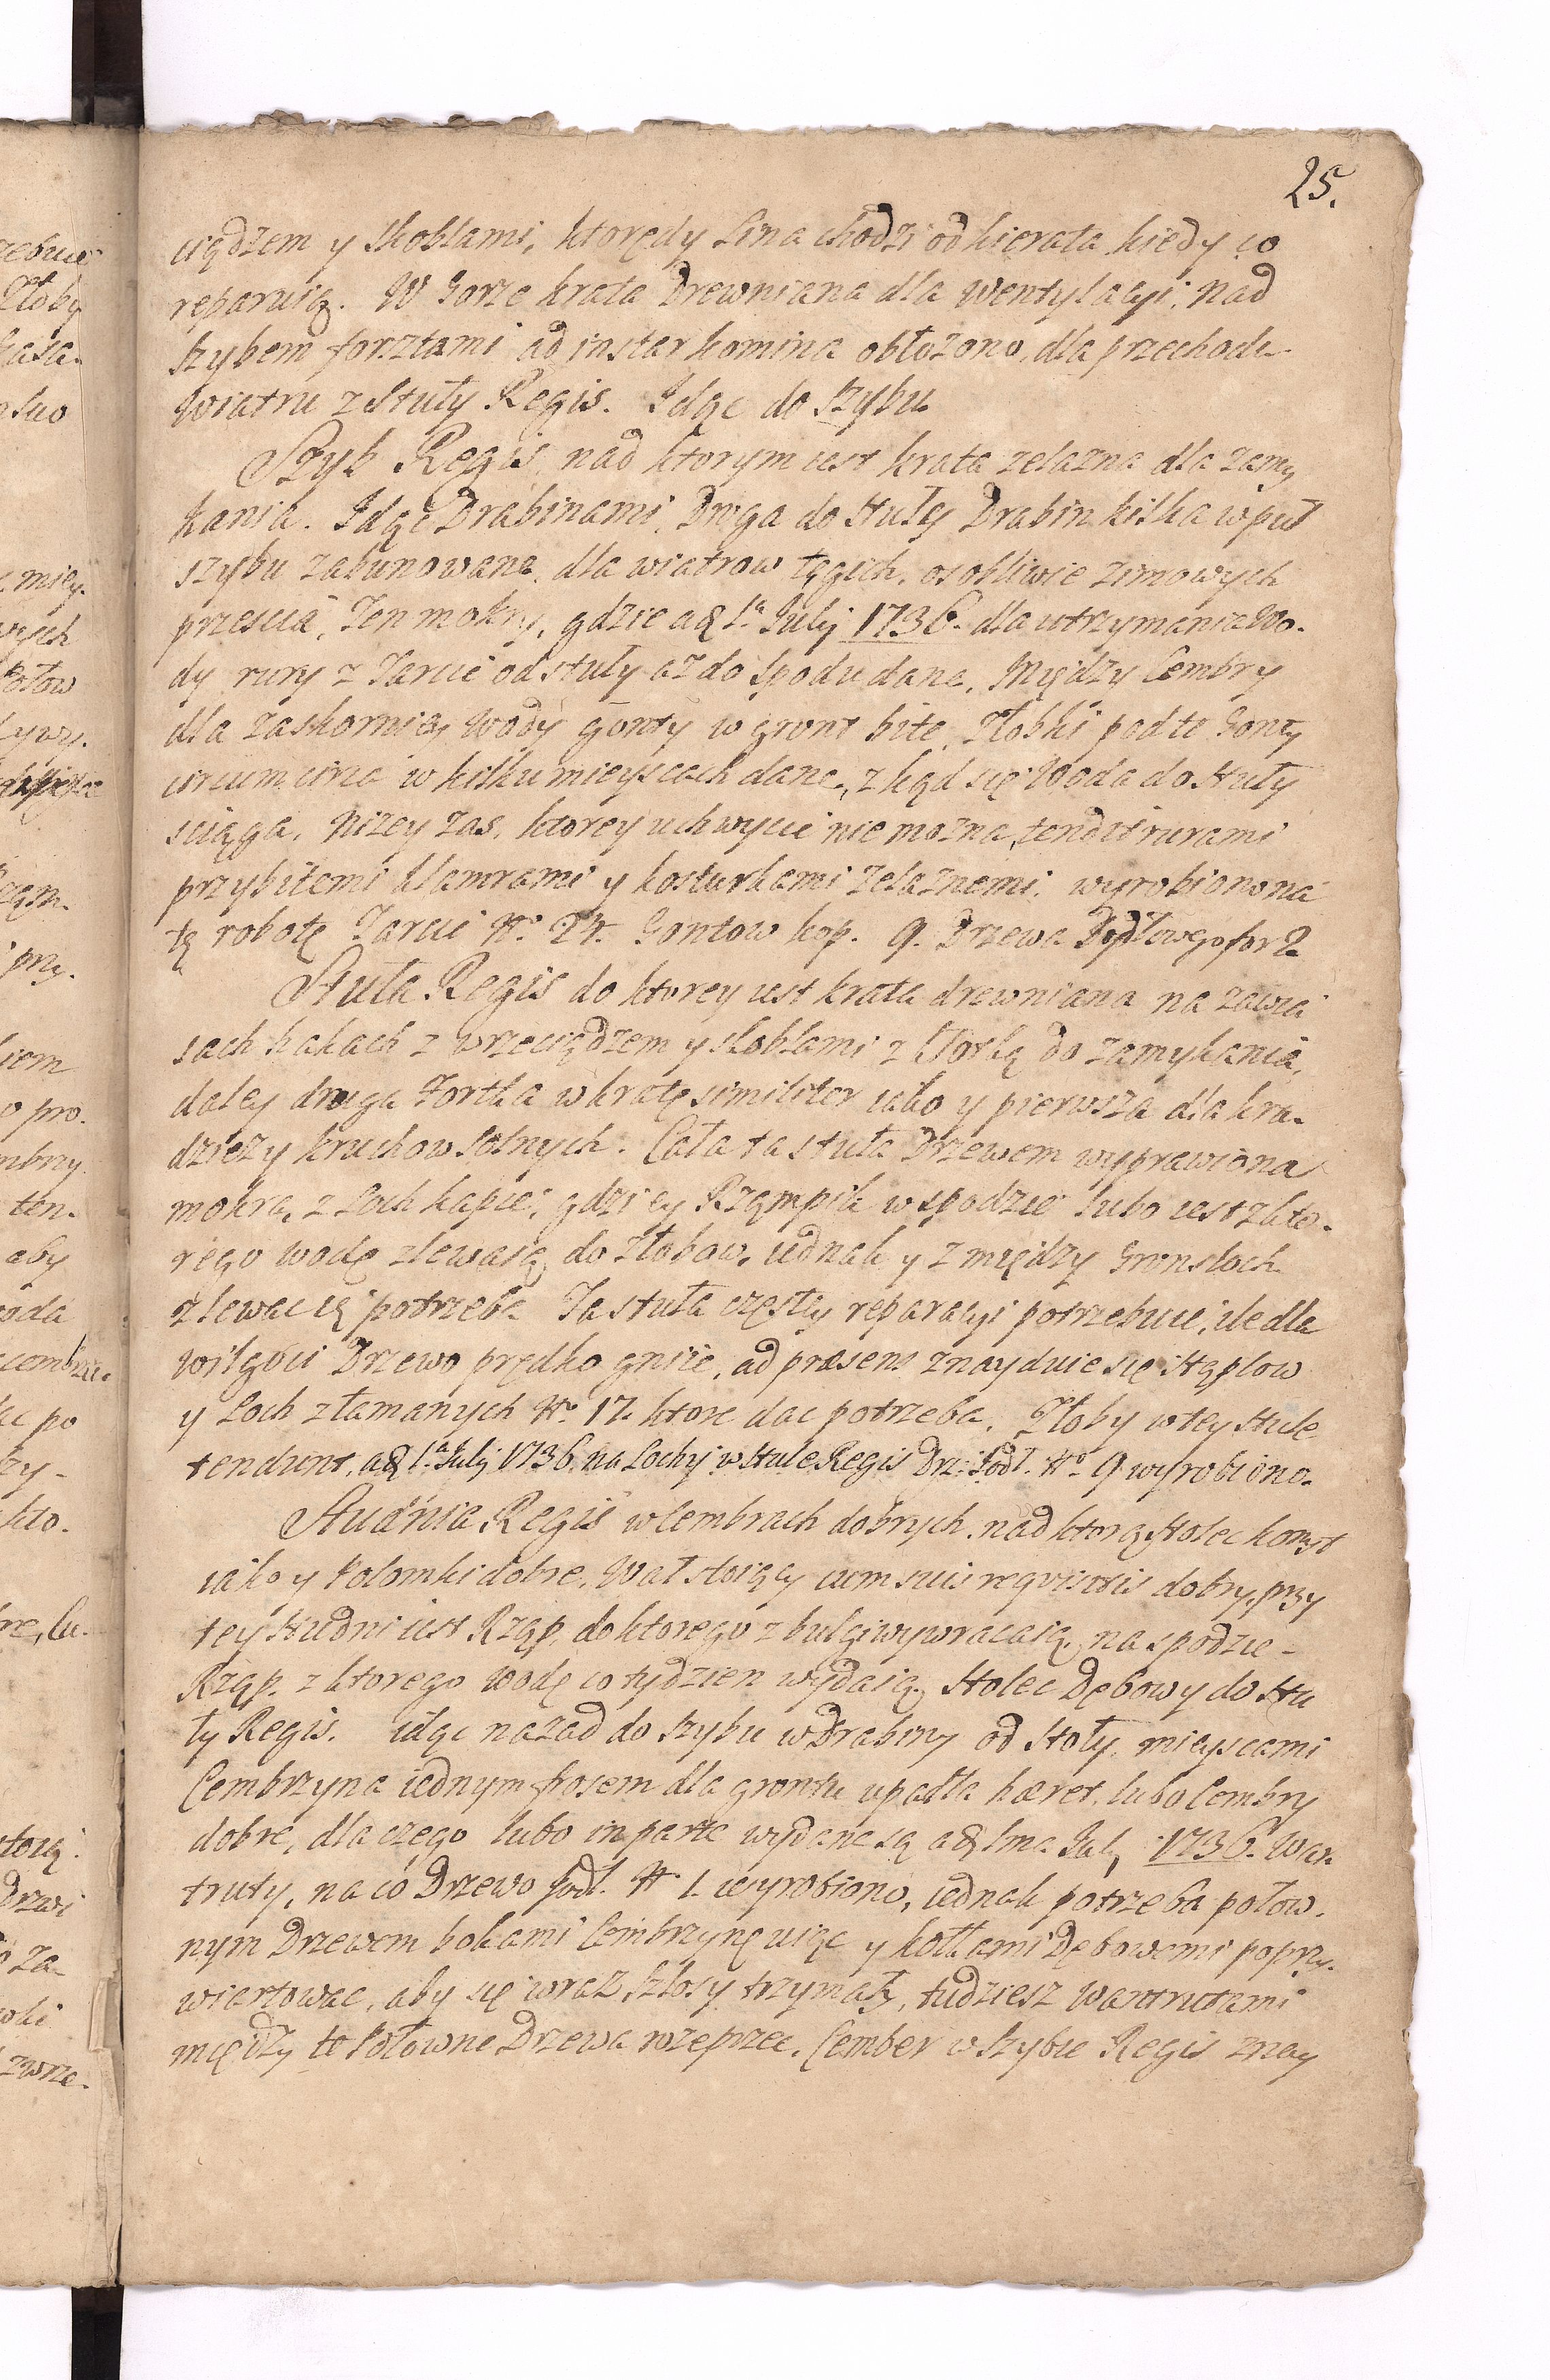 25.
ciądzem y skoblami, ktorędy Lina chodzi od kierata kiedy co
reparuią. W Gorze krata Drewniana dla Wentylacyi, nad
szybem forsztami ad instar komina obłozono, dla przechodu
Wiatru z Stuły Regis. Idąc do szybu
Szyb Regis, nad ktorym iest krata zelazna dla zamy
kania. Idąc Drabinami, Druga do Stuły Drabin kilka w puł
szybu zabunowane, dla wiatrow tęgich, osobliwie zimowych
prześcia, Ten mokry, gdzie a& 1ª Julij 1736. dla utrzymania Wo-
dy rury z Tarcic od stuły az do spodu dane, Między Cembry
dla zaskorniey Wody gonty w grunt bite, Złobki pod te Gonty
circum circa w kilku mieyscach dane, z kąd się Woda do Stuły
sciąga, nizey zas, ktorey uchwycić nie mozna, tendit rurami
przybitemi klamrami y kosturkami zelaznemi, wyrobiono na
tę robotę Tarcic Nº 24. Gontow kop. 9. Drzewa Podłowego for 2
Stuła Regis do ktorey iest krata drewniana na zawia
sach hakach z wrzeciądzem y skoblami z Fortką do zamykania,
daley druga Fortka w kratę similiter iako y pierwsza dla kra-
dziezy kruchow solnych. Cała ta stuła Drzewem wyprawiona
mokra, z Loch kapie, gdzie y Rząmpik w spodzie lubo iest z kto-
rego wodę zlewaią do złobow, iednak y z między Gronsloch
zlewać ią potrzeba. Ta stuła częstey reparacyi potrzebuie, ile dla
wilgoci Drzewo prędko gniie, ad præsens znayduie się stęplow
y Loch złamanych Nº 17. ktore dac potrzeba, Złoby w tey stule
tendunt, a& 1ª Julij 1736. na Lochy w Stule Regis Drz: Podł. Nº 9 wyrobiono.
Studnia Regis w Cembrach dobrych, nad ktorą Stolec konst
iako y Polomki dobre, Wał stoiący cum suis reqvisitis dobry, przy
tey studni iest Rząp, do ktorego z bulgi wywracaią, na spodzie
Rząp, z ktorego wodę co tydzien wydaią. Stolec Dębowy do Stu
ły Regis. idąc nazad do szybu w Drabiny od Stoły, mieyscami
Cembrzyna iednym frosem dla gruntu upadła hæret, lubo Cembry
dobre, dla czego lubo in parte wydane są a& 1ma Julij 1736. Wan
truty, na co Drzewo Podł. Nº 1. wyrobiono, iednak potrzeba połow-
nym Drzewem bokami Cembrzynę uiąc y kotłami Dębowemi poprzy-
wiertowac, aby się wraz szłosy trzymały, tudziesz Wantrutami
między te Połowne Drzewa rozeprzec. Cember w szybie Regis znay